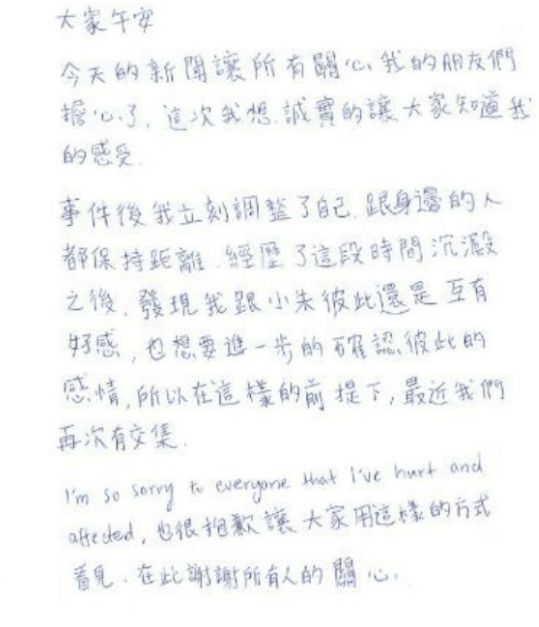 大家午安
今天的新聞讓所有關心我的朋友們
擔心了, 這次我想誠實的讓大家知道我
的感受.
事件後我立刻調整了自己. 跟身邊的人
都保持距離. 經歷了這段時間沉澱
之後, 發現我跟小朱彼此還是互有
好感, 也想要進一步的確認彼此的
感情, 所以在這樣的前提下, 最近我們
再次有交集.
I'm so sorry to everyone that I've hurt and
affected, 也很抱歉讓大家用這樣的方式
看見. 在此謝謝所有人的關心.